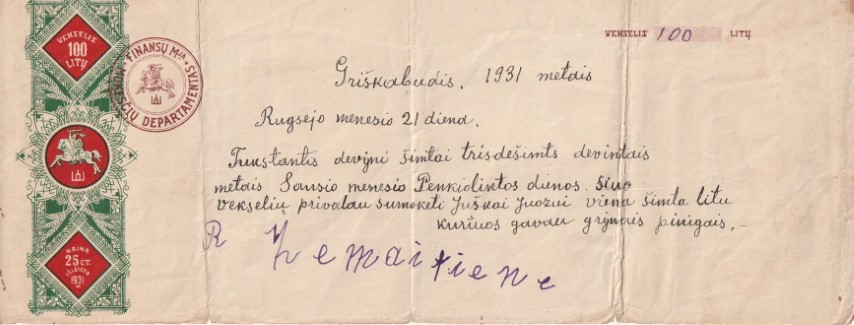 VEKSELIS
100
LITŲ
FINANSŲ M-JA
MOKESČIŲ DEPARTAMENTAS
KAINA
25 CT.
IŠLEISTA
1931
VEKSELIS 100 LITŲ
Griškabudis, 1931 metais
Rugsejo menesio 21 diena.
Tukstantis devyni šimtai trisdešimts devintais
metais Sausio menesio Penkioliktos dienos. Siuo
vekseliu privalau sumokėti Juškai Juozui viena šimta litu
kuriuos gavau grynais pinigais.–
R Žemaitiene